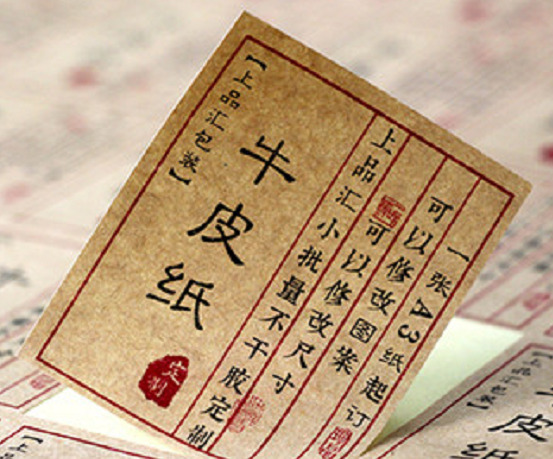 一张A3纸起订
可以修改图案
可以修改尺寸
上品汇小批量不干胶定制
牛皮纸
【上品汇包装】
定制